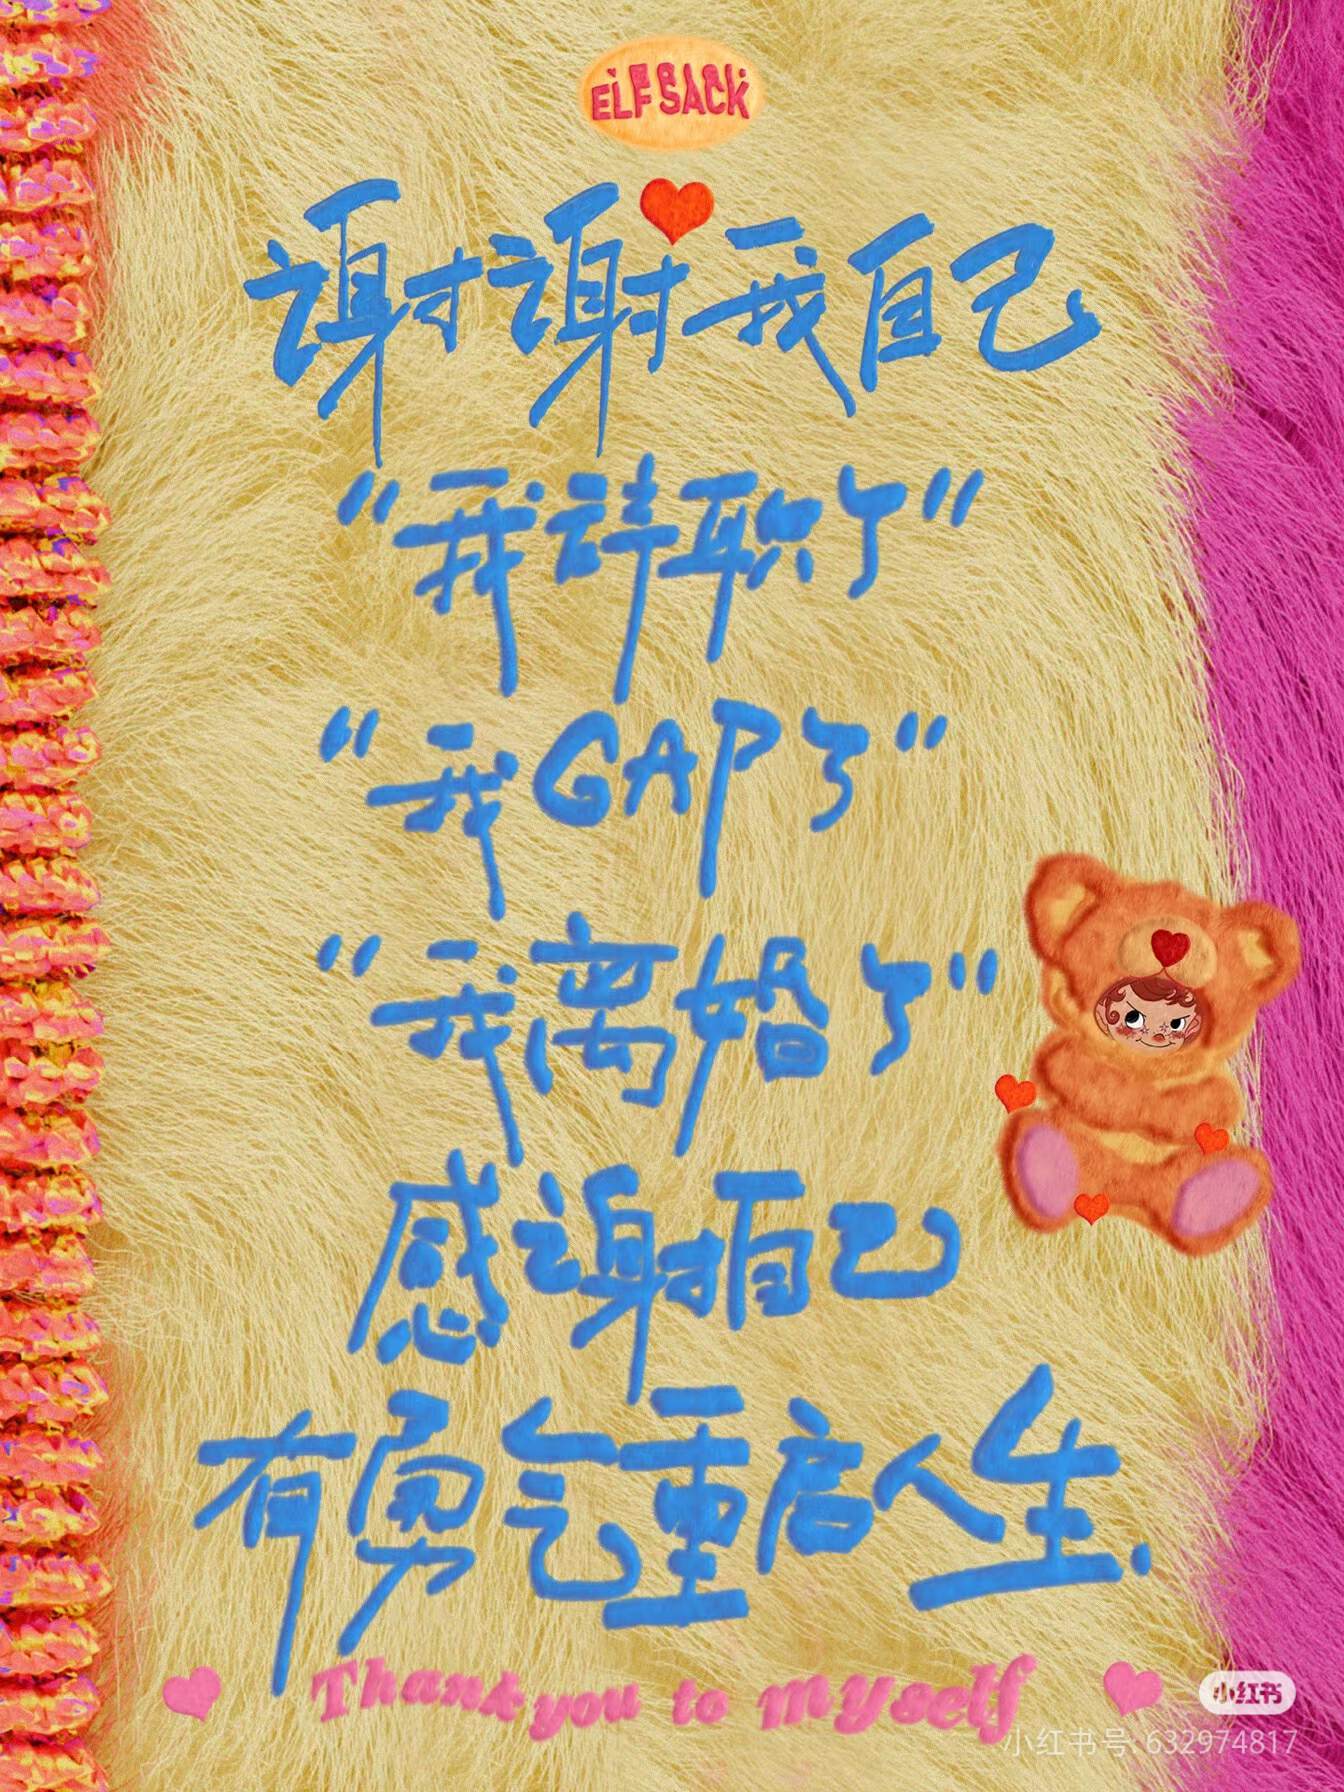 ELF SACK
谢谢我自己
“我辞职了”
“我GAP了”
“我离婚了”
感谢自己
有勇气重启人生.
Thank you to myself
小红书
小红书号: 632974817